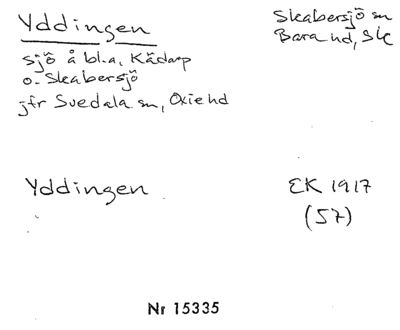 Yddingen
Skabersjö sn
Bara hd, Sk
sjö å bl.a. Kädarp
o. Skabersjö
jfr Svedala sn, Oxie hd
Yddingen
EK 1917
(57)
Nr 15335